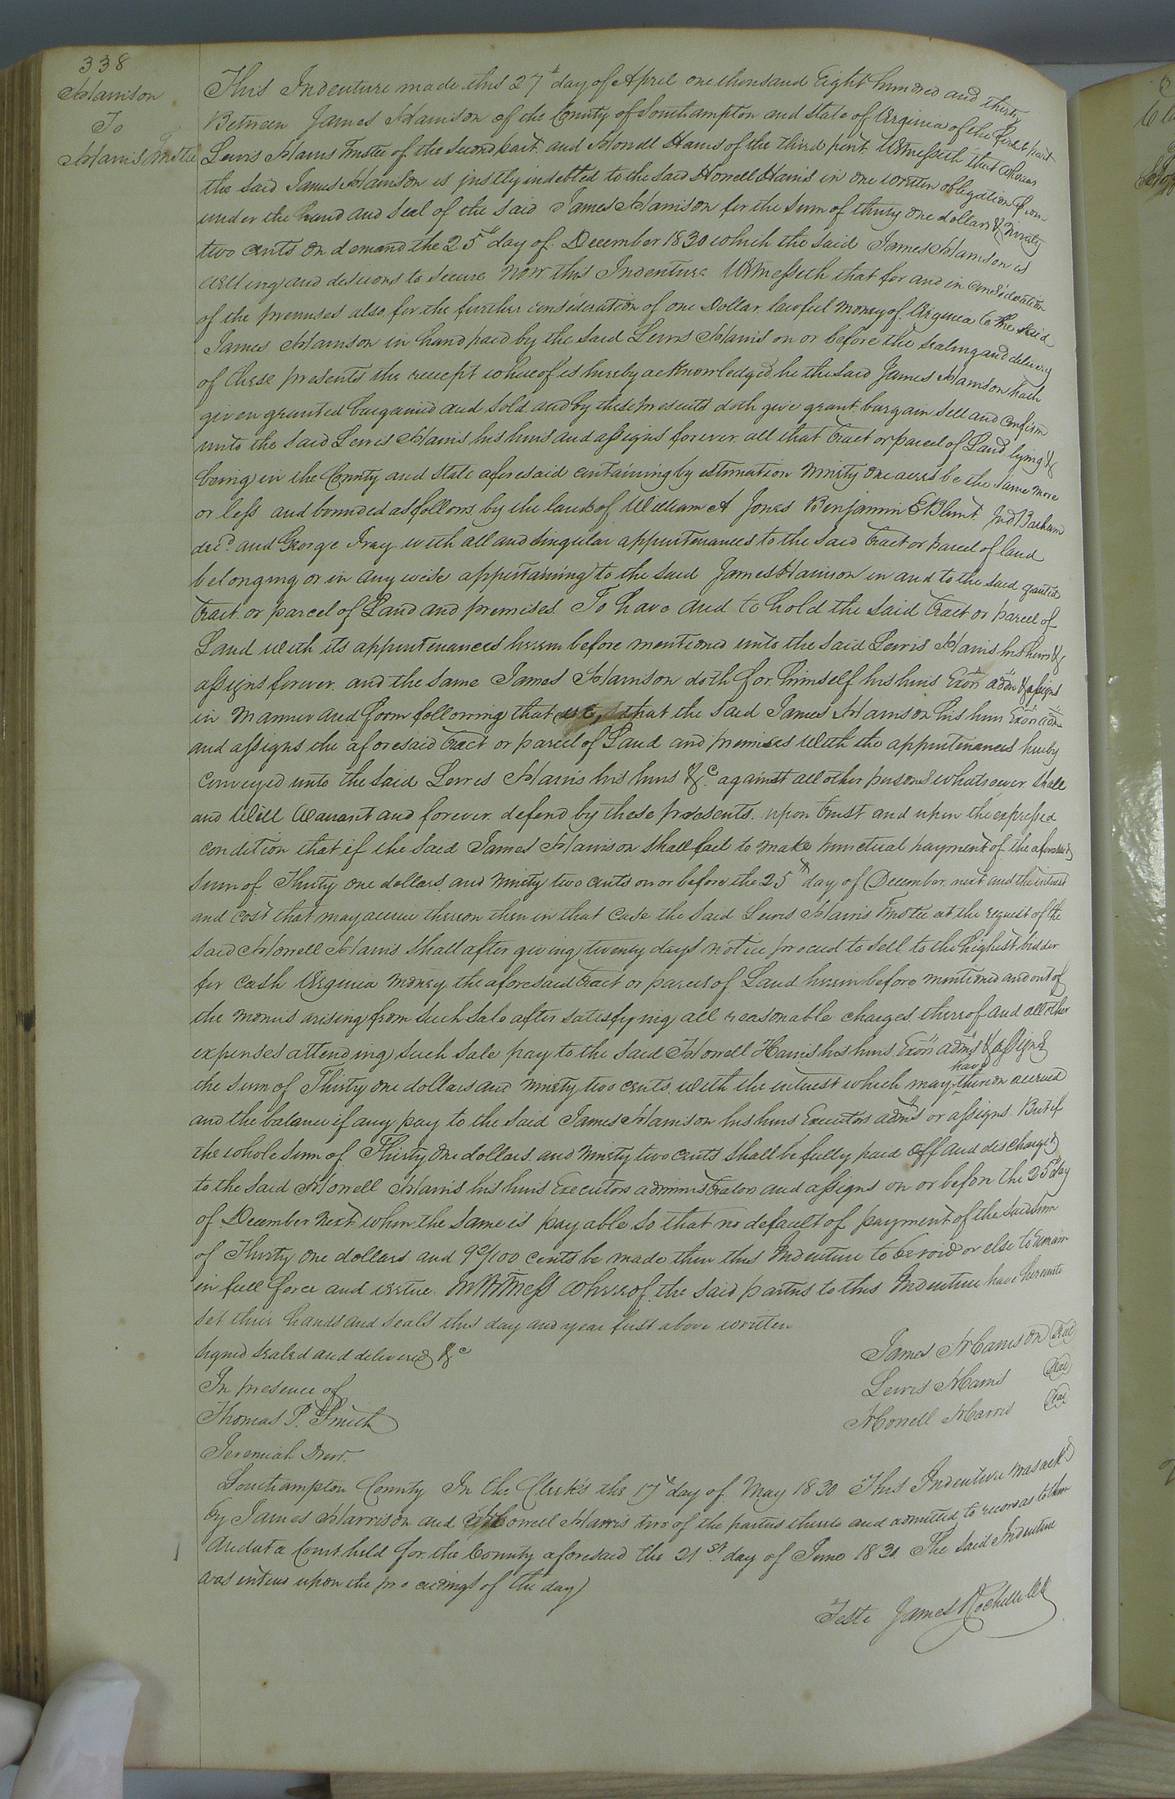 338
Harrison
To
Harris Trustee
This Indenture made this 27th day of April one thousand Eight hundred and thirty
Between James Harrison of the County of Southampton and State of Virginia of the first part
Lewis Harris Trustee of the Second part and Howell Harris of the third part Witnesseth that whereas
the said James Harrison is justly indebted to the said Howell Harris in one written obligation from
under the hand and seal of the said James Harrison for the sum of thirty one dollars & Ninety
two cents on demand the 25th day of December 1830 which the said James Harrison is
willing and desirous to secure Now this Indenture Witnesseth that for and in consideration
of the premises also for the further consideration of one Dollar lawful money of Virginia to the said
James Harrison in hand paid by the said Lewis Harris on or before the sealing and delivery
of these presents the receipt whereof is hereby acknowledged he the said James Harrison hath
given granted bargained and sold and by these presents doth give grant bargain sell and confirm
unto the said Lewis Harris his heirs and assigns forever all that Tract or parcel of Land lying &
being in the County and State aforesaid containing by estimation Ninety one acres be the same more
or less and bounded as follows by the lands of William A Jones Benjamin E Blunt
decd. and George Gray with all and singular appurtenances to the said Tract or parcel of land
belonging or in any wise appertaining to the said James Harrison in and to the said granted
Tract or parcel of Land and premises To have and to hold the said Tract or parcel of
Land with its appurtenances herein before mentioned unto the said Lewis Harris his heirs &
assigns forever and the same James Harrison doth for himself his heirs Exors adms & assigns
in manner and form following that is that the said James Harrison his heirs Exors adms
and assigns the aforesaid Tract or parcel of Land and premises with the appurtenances hereby
conveyed unto the said Lewis Harris his heirs &c. against all other persons whatsoever shall
and Will Warrant and forever defend by these presents upon Trust and upon the expressed
condition that if the said James Harrison shall fail to make punctual payment of the aforesaid
sum of Thirty one dollars and ninety two cents on or before the 25th day of December next and the interest
and cost that may accrue thereon then in that case the said Lewis Harris Trustee at the request of the
said Howell Harris shall after giving twenty days notice proceed to sell to the highest bidder
for cash Virginia money the aforesaid Tract or parcel of Land herein before mentioned and out of
the monies arising from such sale after satisfying all reasonable charges thereof and all other
expenses attending such sale pay to the said Howell Harris his heirs Exors adms & assigns
the sum of Thirty one dollars and ninety two cents with the interest which may have thereon accrued
and the balance if any pay to the said James Harrison his heirs Executors adms or assigns But if
the whole sum of Thirty One dollars and Ninety two cents shall be fully paid off and discharged
to the said Howell Harris his heirs Executors administrators and assigns on or before the 25th day
of December Next when the same is payable so that no default of payment of the said sum
of Thirty one dollars and 92/100 cents be made then this Indenture to be void or else to remain
in full force and virtue In Witness whereof the said parties to this Indenture have hereunto
set their hands and seals this day and year first above written
signed sealed and delivered &c
In presence of
Thomas P. Smith
Jeremiah Drew
James Harrison Seal
Lewis Harris Seal
Howell Harris Seal
Southampton County In the Clerk's the 17th day of May 1830 This Indenture was ackd
by James Harrison and Howell Harris two of the parties thereto and admitted to record as to them
And at a Court held for the County aforesaid the 21st day of June 1830 The said Indenture
was entered upon the proceedings of the day
Teste James Rochelle Clk